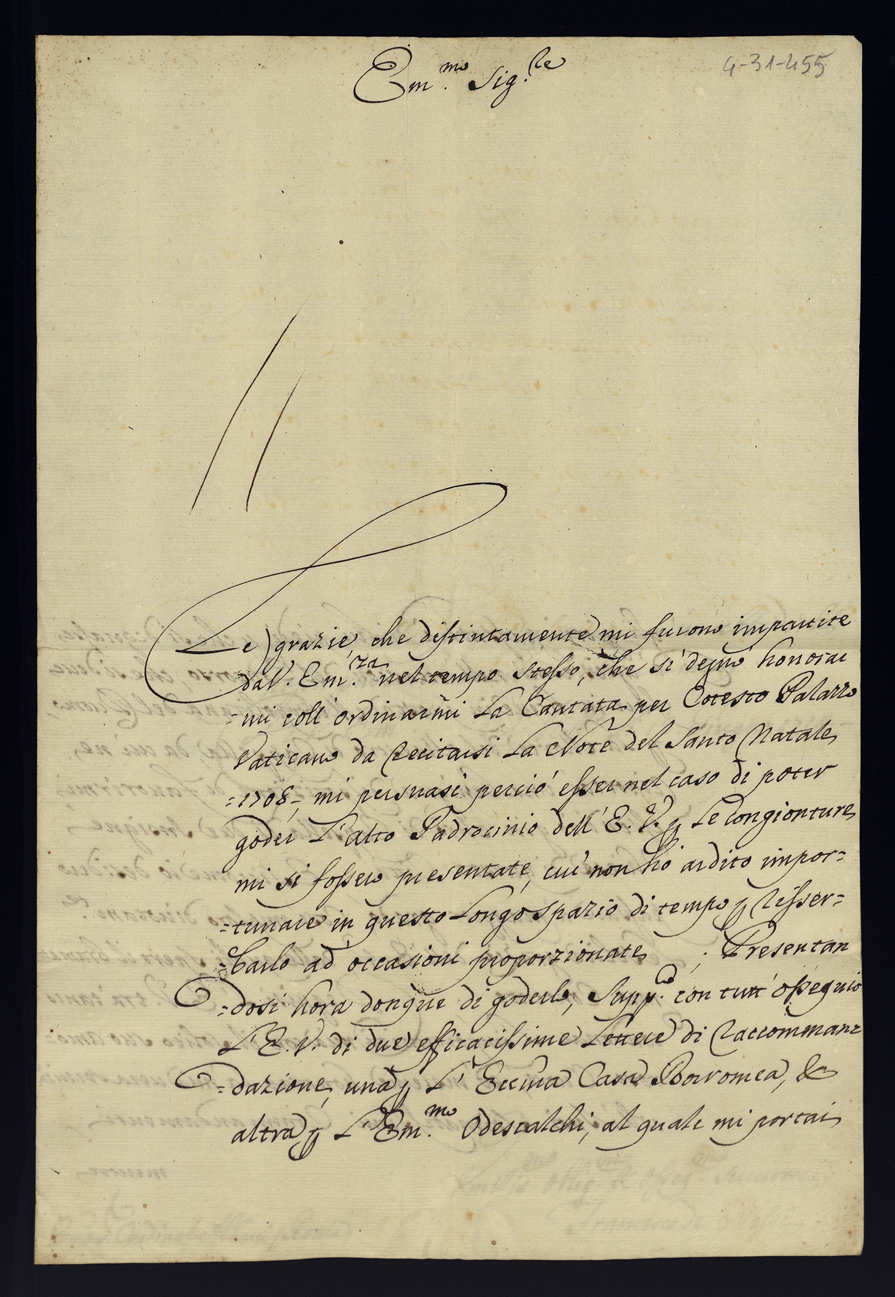 4-31-455
Em.mo Sig.re
Le grazie che distintamente mi furono impartite
dal'. Em.za nel tempo stesso, che si degnò honorar
=mi coll'ordinarmi La Cantata per Cotesto Palazzo
Vaticano da Recitarsi La Notte del Santo Natale
=1708= mi persuasi perciò esser nel caso di poter
goder L'alto Padrocinio dell'E.V. p Le congionture
mi si fossero presentate, cui non hò ardito impor=
=tunare in questo Longo spazio di tempo p Risser=
=barlo ad occasioni proporzionate ; Presentan
=dosi hora donque di goderlo, Supp.co con tutt'ossequio
L'E.V. di due efficacissime Lettere di Raccomman=
=dazione, una p L'Eccma Casa Borromea, &
altra p L'Em.mo Odescalchi, al quale mi portai